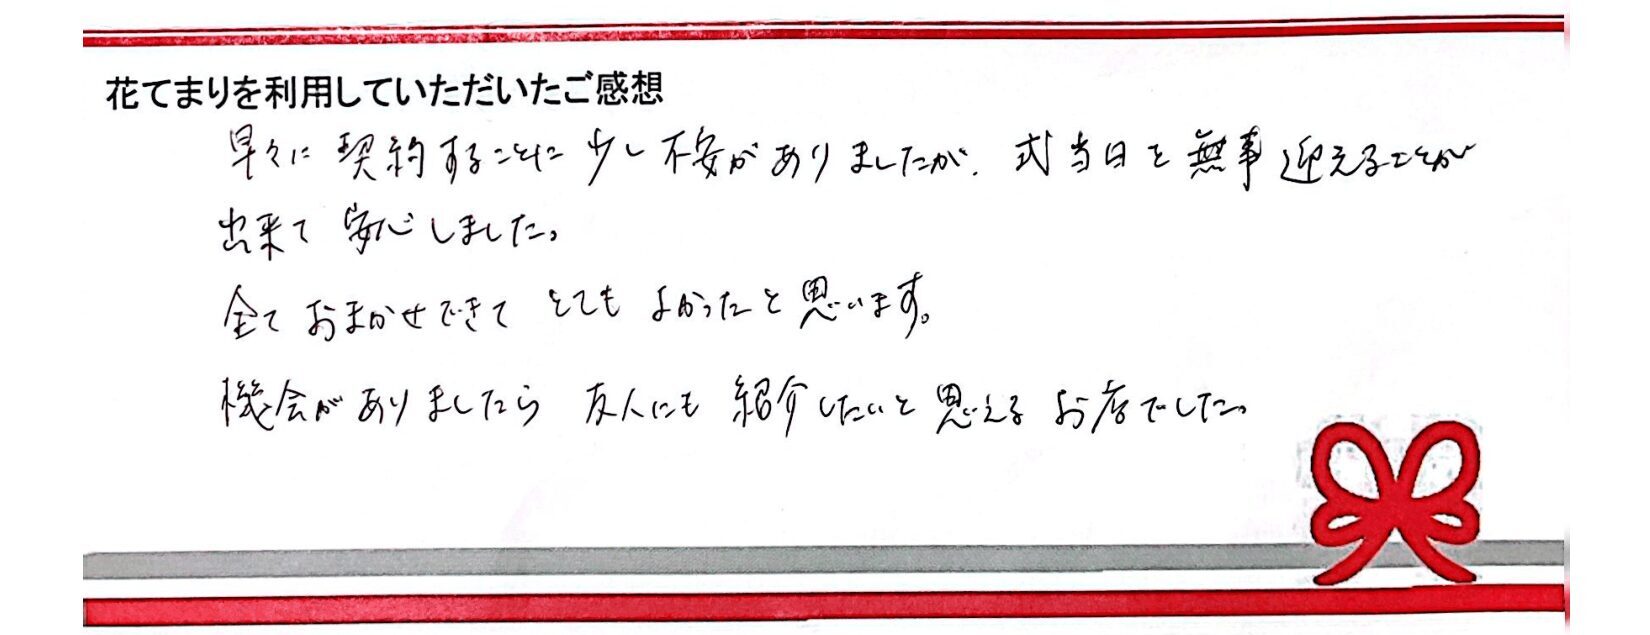 花てまりを利用していただいたご感想
早々に契約することに少し不安がありましたが、式当日を無事迎えることが
出来て安心しました。
全ておまかせできてとてもよかったと思います。
機会がありましたら友人にも紹介したいと思えるお店でした。